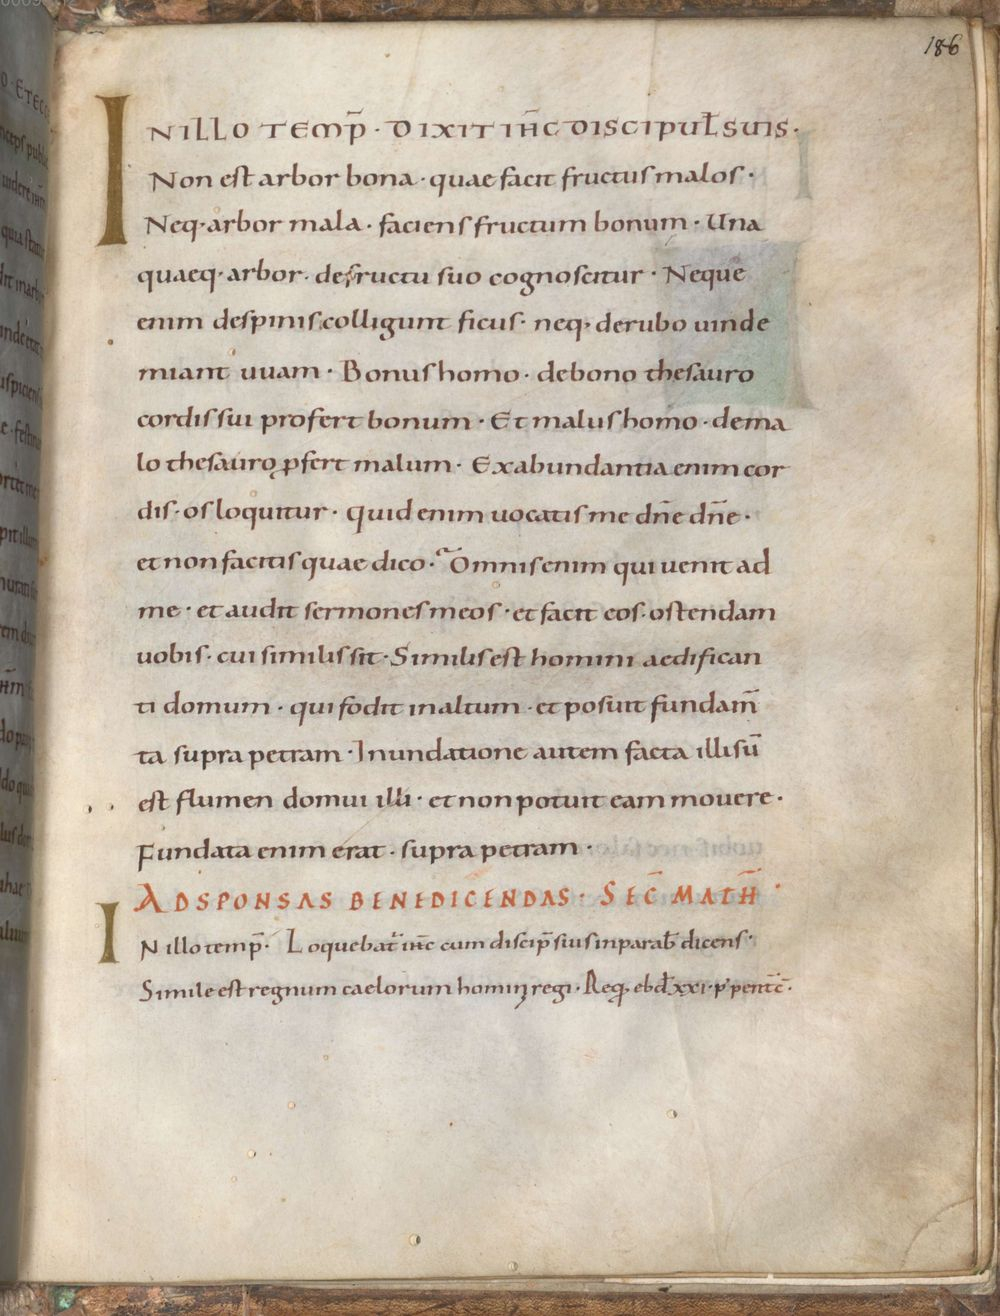 186
IN ILLO TEMP̄ · DIXIT IH̄C DISCIPUŁ SUIS ·
Non est arbor bona · quae facit fructus malos ·
Neq· arbor mala · faciens fructum bonum · Una
quaeq· arbor · de fructu suo cognoscitur · Neque
enim de spinis colligunt ficus · neq· de rubo uinde
miant uuam · Bonus homo · de bono thesauro
cordis sui profert bonum · Et malus homo · de ma
lo thesauro ꝓfert malum · Ex abundantia enim cor
dis · os loquitur · quid enim uocatis me dn̄e dn̄e ·
et non facitis quae dico · Omnis enim qui uenit ad
me · et audit sermones meos · et facit eos · ostendam
uobis · cui similis sit · Similis est homini aedifican
ti domum · qui fodit in altum · et posuit fundam̄
ta supra petram · Inundatione autem facta illisū
est flumen domui illi · et non potuit eam mouere ·
Fundata enim erat · supra petram ·
AD SPONSAS BENEDICENDAS · SEC̄ MATH̄
IN illo temp̄ · Loquebat̄ ih̄c cum discip̄ suis in parab̄ dicens ·
Simile est regnum caelorum homini regi · Req̄ ebd̄ xxi · p̄ pentc̄ ·